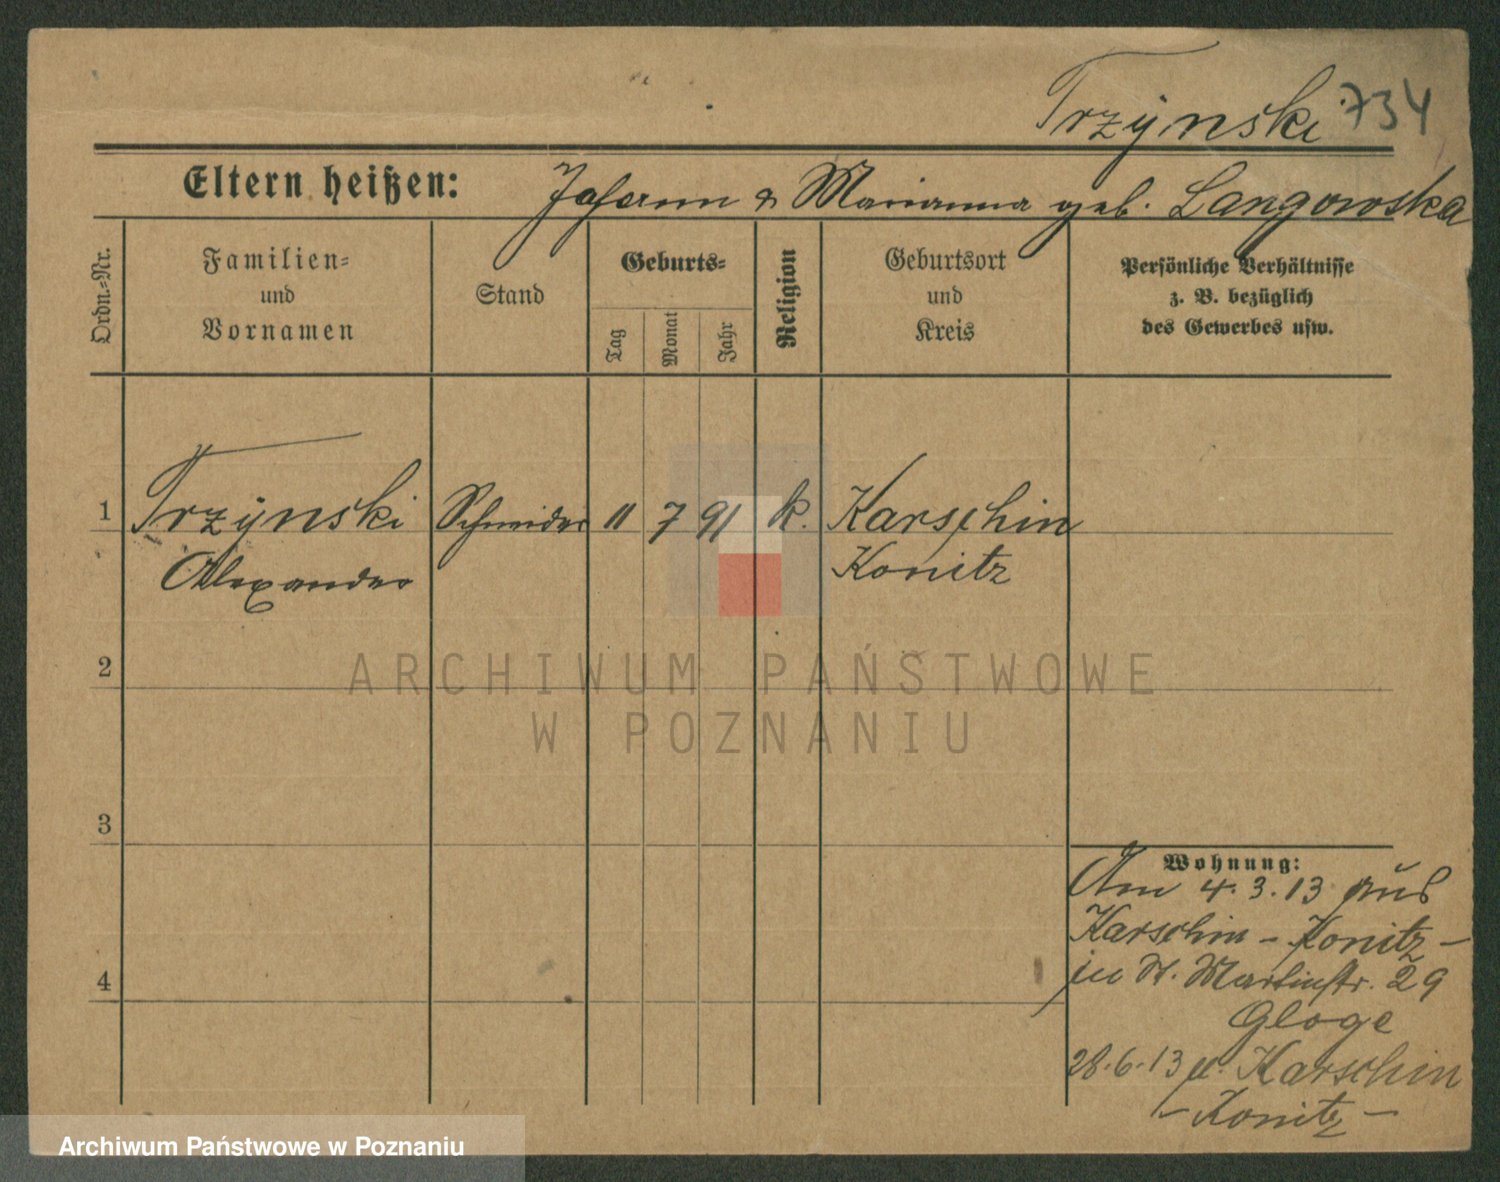 Trzynski 734
Eltern heißen: Johann & Marianna geb. Langowska
Ordn.=Nr.
Familien=
und
Vornamen
Stand
Geburts=
Tag
Monat
Jahr
Religion
Geburtsort
und
Kreis
Persönliche Verhältnisse
z. B. bezüglich
des Gewerbes usw.
1 Trzynski Schneider 11 7 91 k. Karschin
Alexander Konitz
2
3
4
Wohnung:
Am 4.3.13 aus
Karschin - Konitz -
in St. Martinstr. 29
Gloge
28.6.13 n. Karschin
- Konitz -
ARCHIWUM PAŃSTWOWE
W POZNANIU
Archiwum Państwowe w Poznaniu